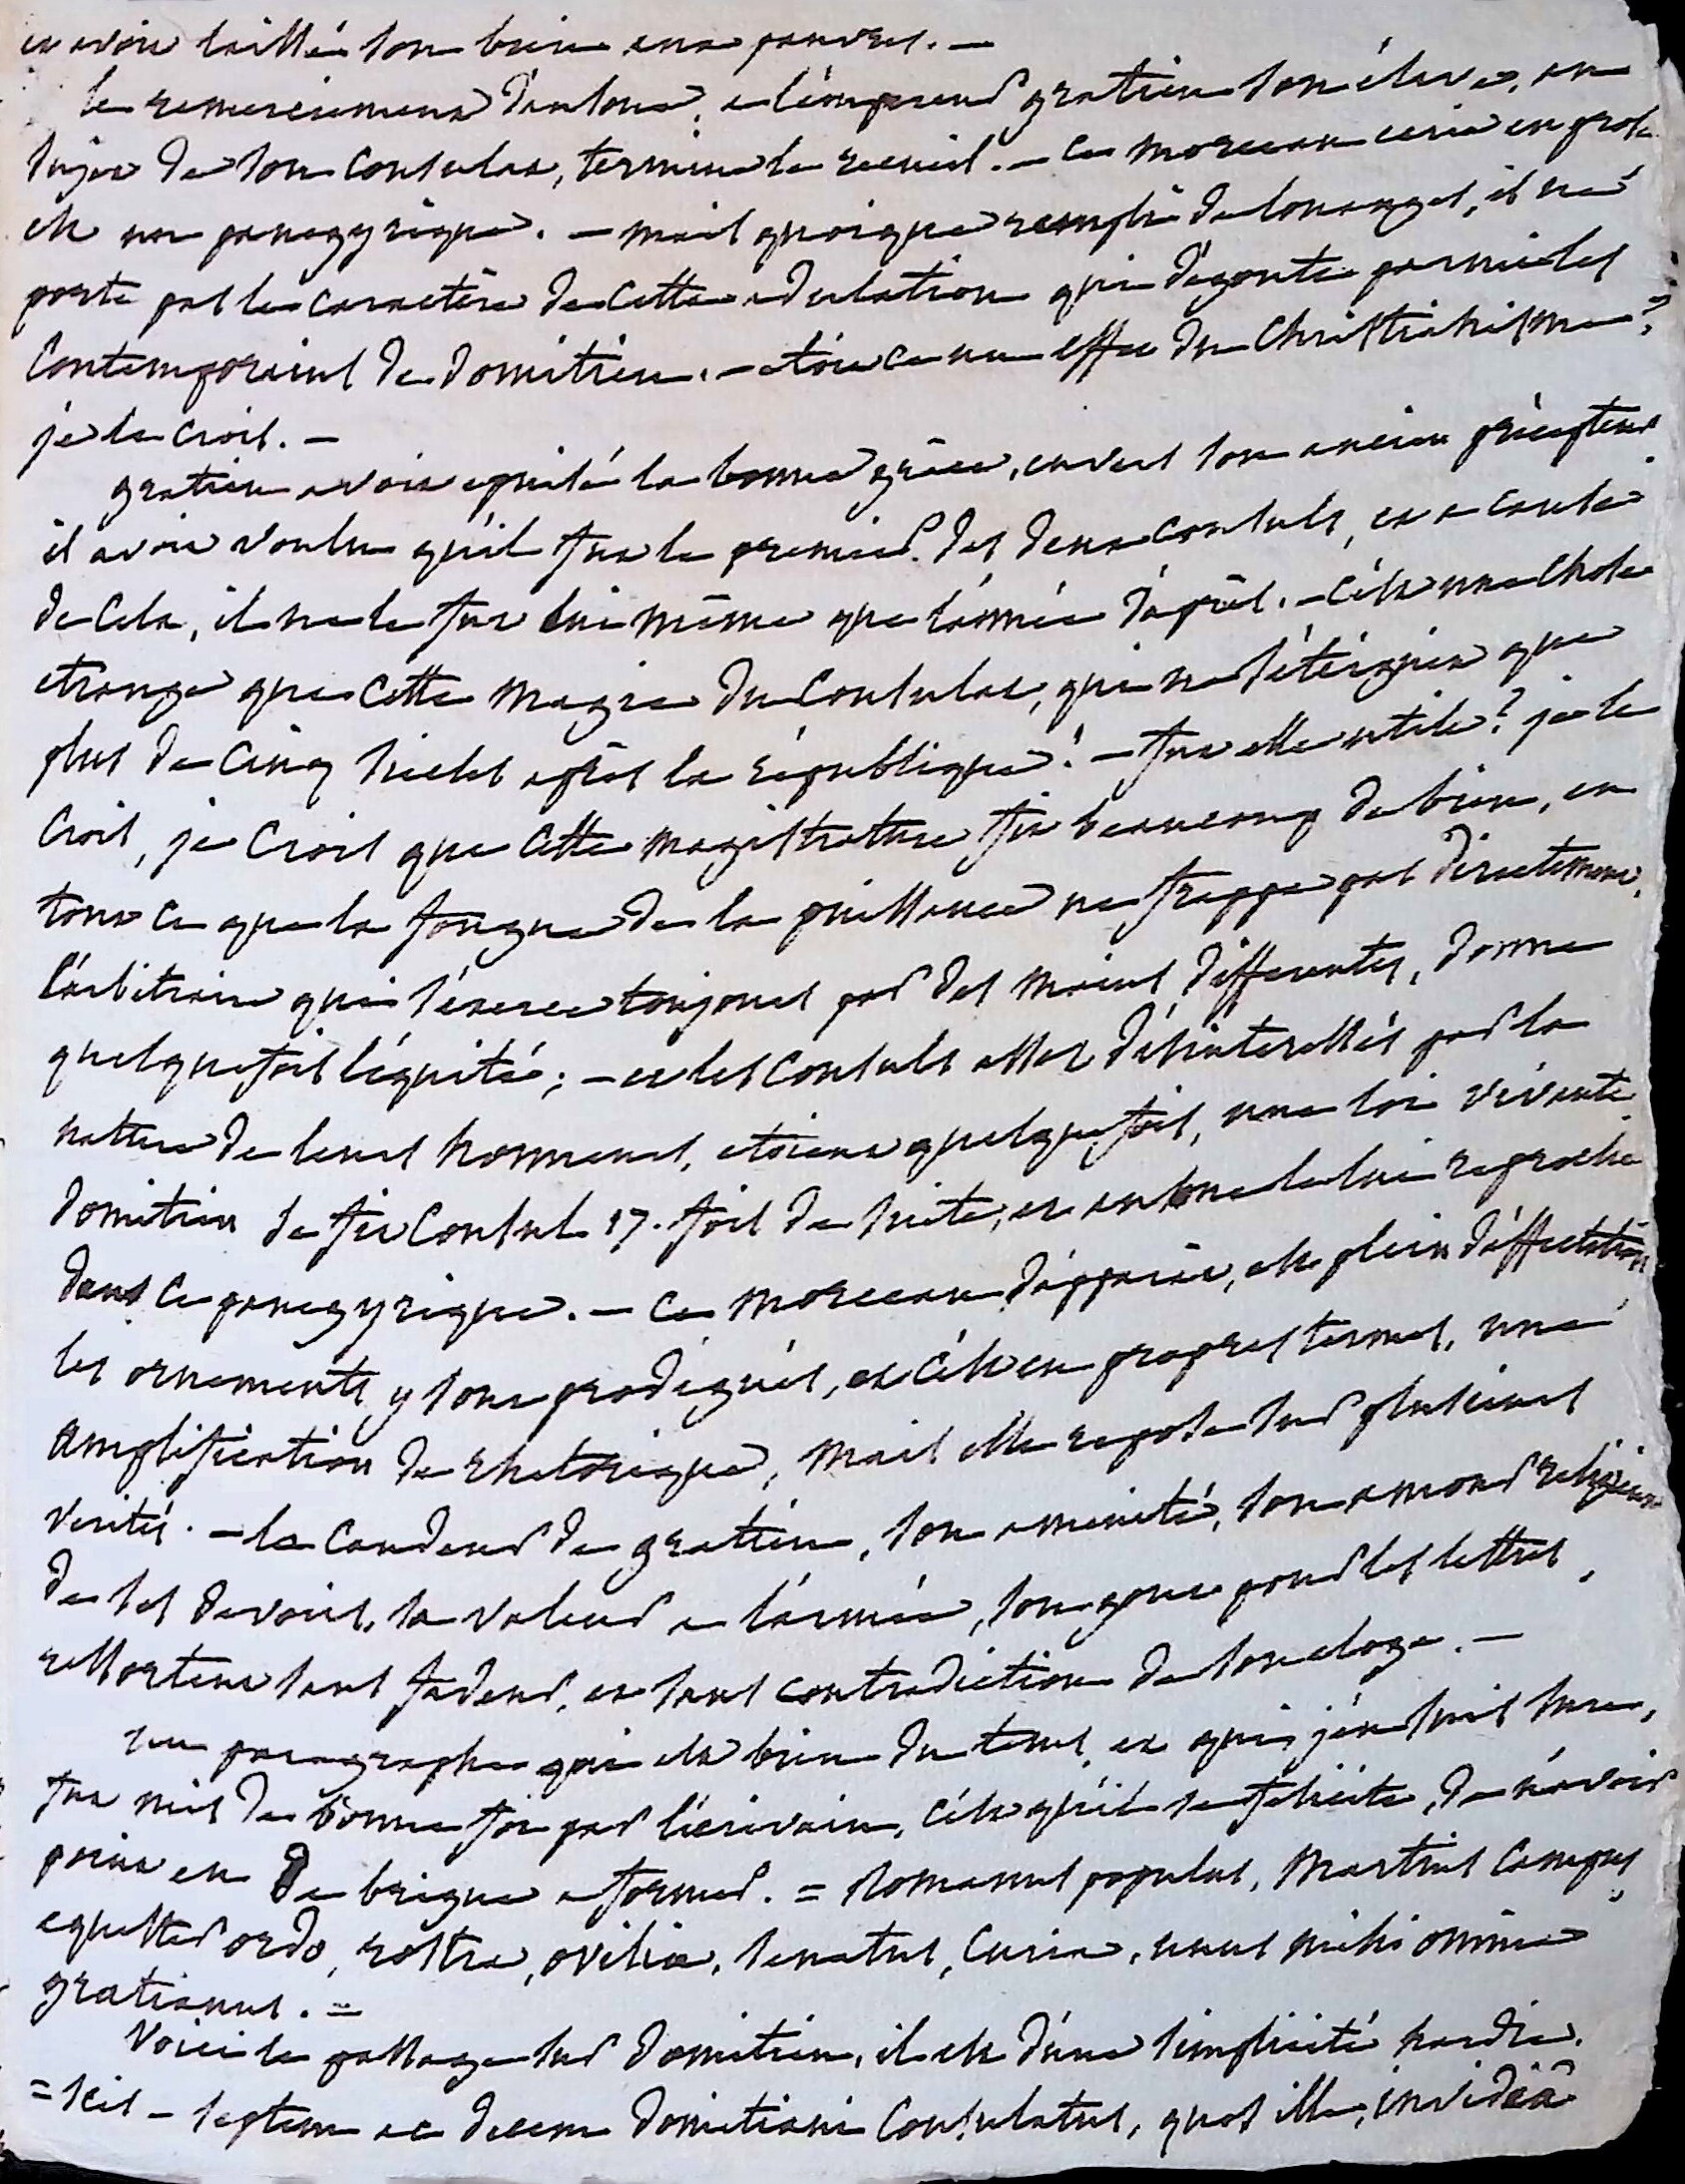 et avoir laissé son bien aux pauvres. —
le remerciement d'ausone, a l'empereur gratien son élève, au
sujet de son consulat, termine le recueil. — Ce morceau ecrit en prose
est un panegyrique. — mais quoique rempli de louanges, il ne
porte pas le caractère de cette adulation qui dégoute parmi les
Contemporains de domitien. — étoit ce un effet du Christianisme?
je le crois. —
gratien avoit epuisé la bonne grâce, envers son ancien précepteur
il avoit voulu qu'il fut le premier des deux consuls, et a cause
de cela, il ne le fut lui même que l'année d'après. — C'est une chose
etrange que cette magie du Consulat, qui ne s'éteignit que
plus de cinq siecles après la république! — fut elle utile? je le
crois, je crois que cette magistrature fit beaucoup de bien, en
tout ce que la fougue de la puissance ne frappe pas directement,
l'arbitraire qui s'exerce toujours par des mains differentes, donne
quelquefois l'équité; — et les Consuls assez désinteressés par la
nature de leurs honneurs, etoient quelquefois, une loi vivante.
Domitien se fit Consul 17. fois de suite, et ausone le lui reproche
dans ce panegyrique. — Ce morceau d'apparat, est plein d'affectation
les ornements y sont prodigués, et c'est en propres termes, une
amplification de rhetorique, mais elle repose sur plusieurs
verités. — la candeur de gratien, son amenité, son amour religieux
de ses devoirs, sa valeur a l'armée, son gout pour les lettres,
ressortent sans fadeur, et sans contradiction de son eloge. —
un paragraphe qui est bien du tems, et qui, j'en suis sure,
fut mis de bonne foi par l'écrivain, c'est qu'il se felicite, de n'avoir
point eu de brigue a former. = Romanus populus, Martius Campus,
equester ordo, rostra, ovilia, senatus, curia, unus mihi omnia
gratianus. =
Voici le passage sur domitien, il est d'une simplicité hardie.
= scis — septem ac decem domitiani Consulatus, quos ille, invidiâ